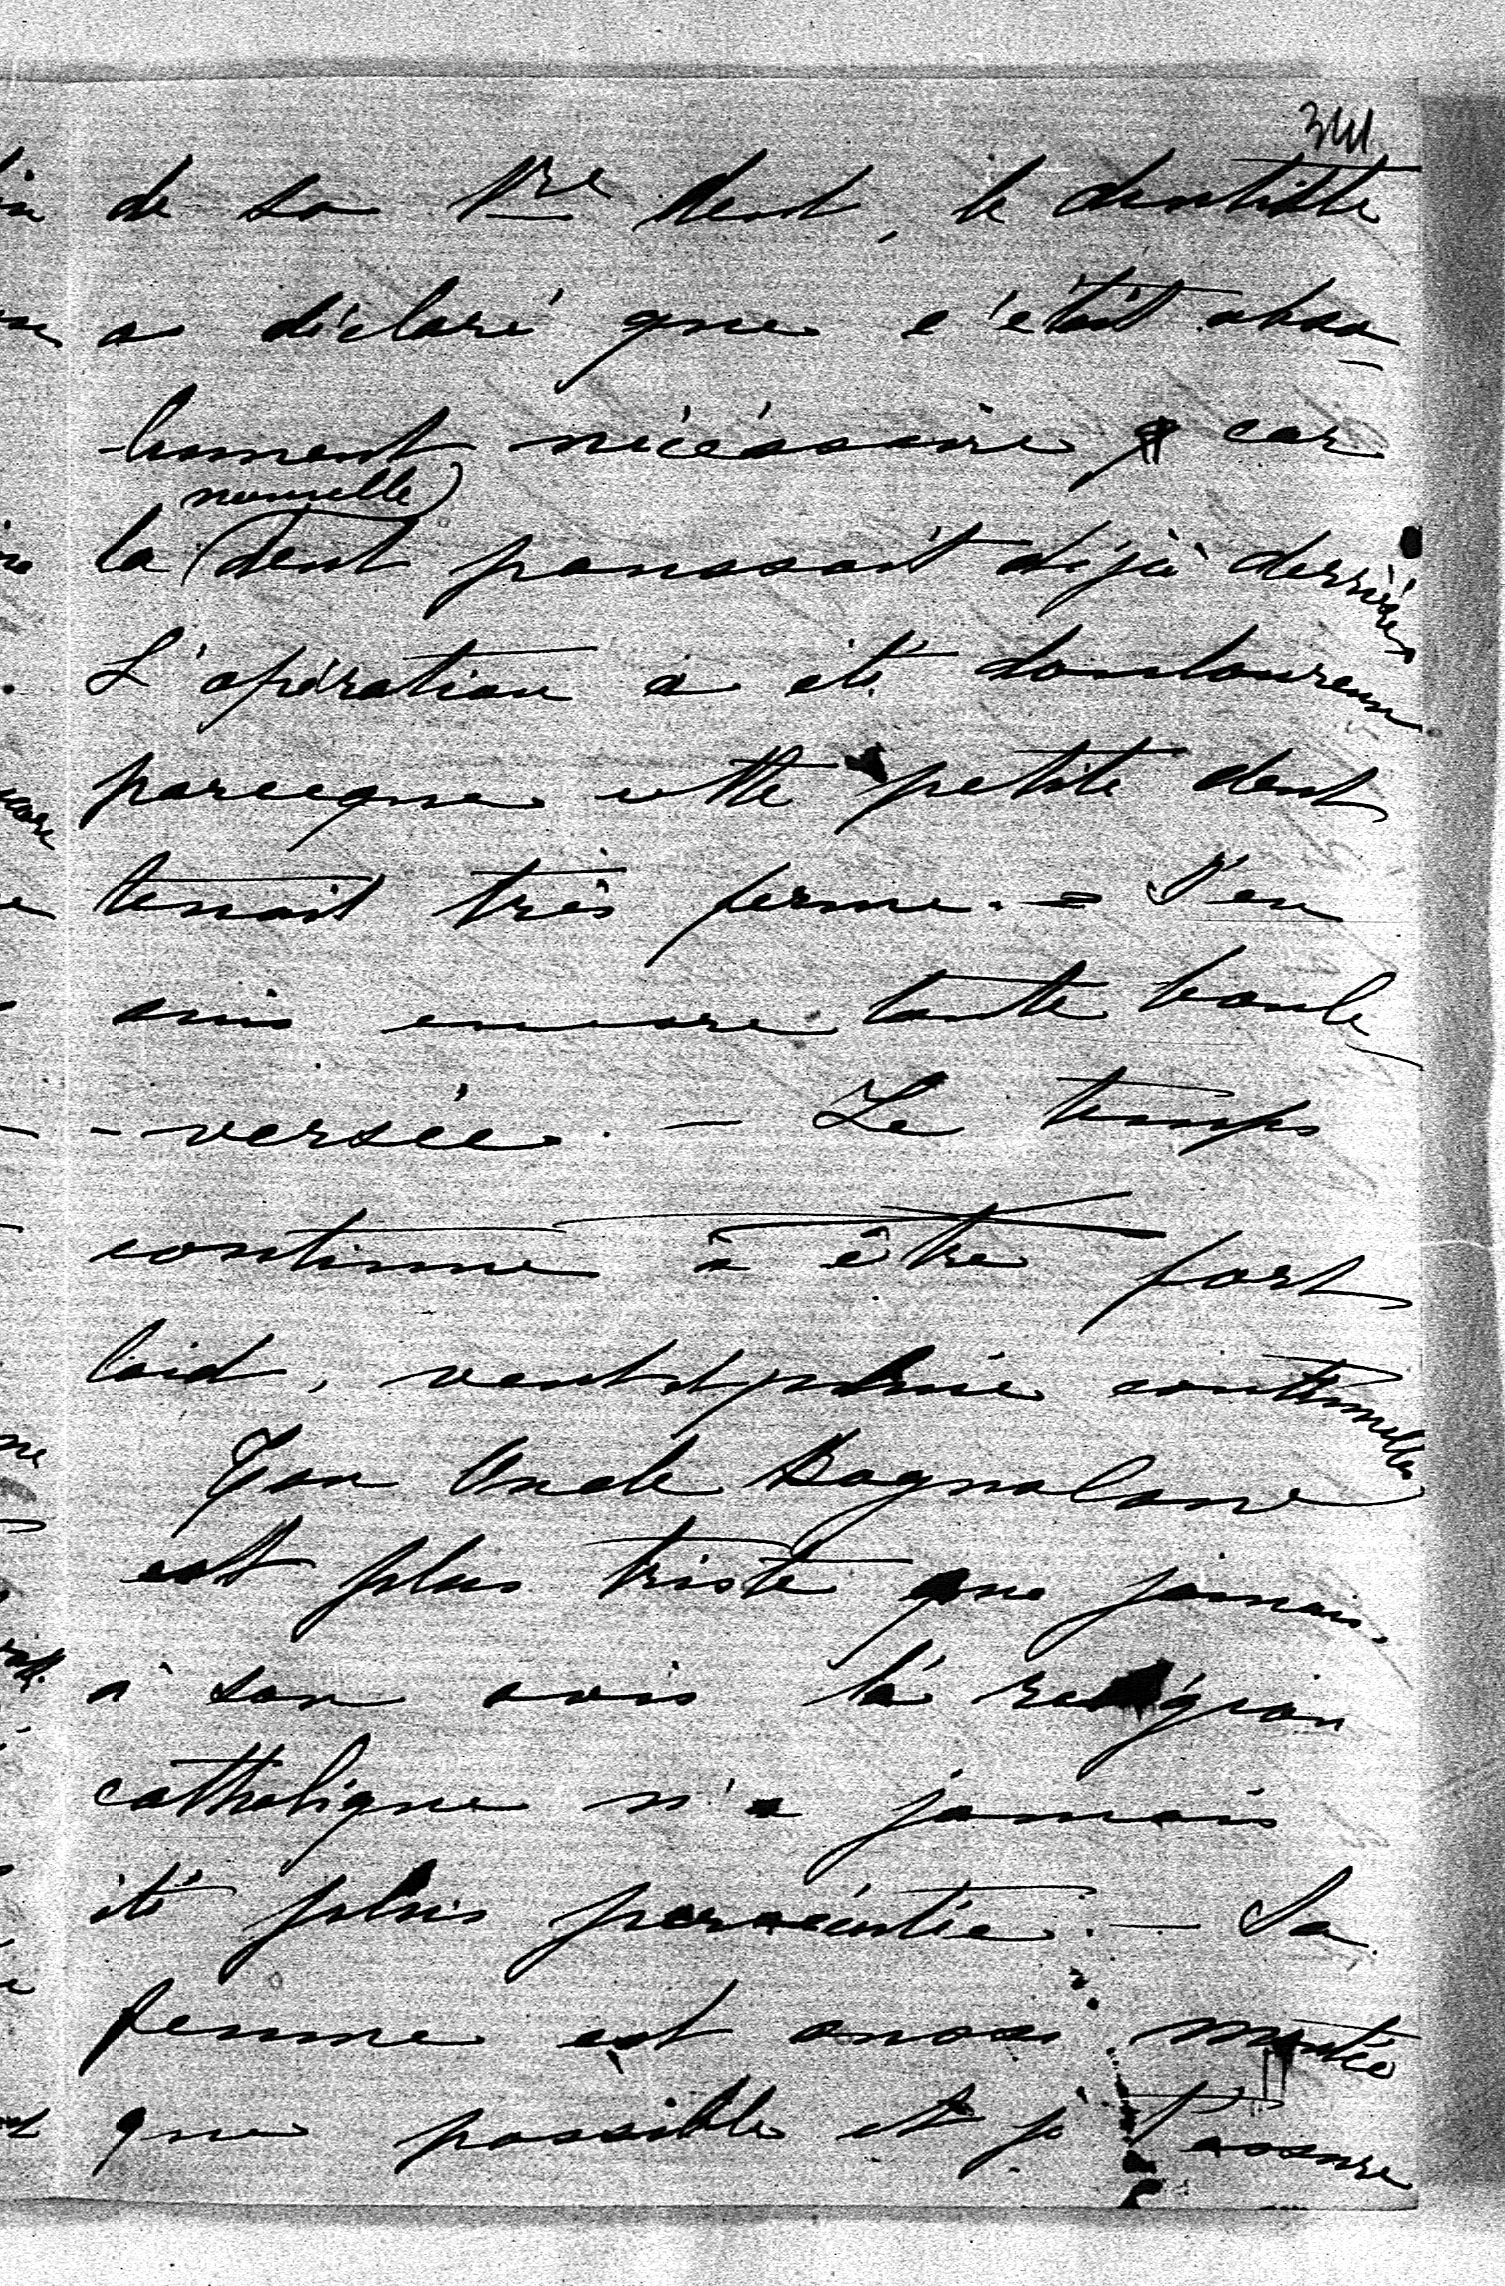 341
de sa 1re dent, le dentiste
a déclaré que c'était abso
-lument nécéssaire, car
nouvelle
la dent poussait déjà derrière
L'opération a été douloureuse
parceque cette petite dent
tenait très ferme. = J'en
suis encore toute boule
-versée. — Le temps
continue à être fort
laid, vent et pluie continuelles
Ton Oncle
est plus triste que jamais,
à son avis la religion
catholique n'a jamais
été plus persécutée. — Sa
femme est aussi montée
que possible et je t'assure